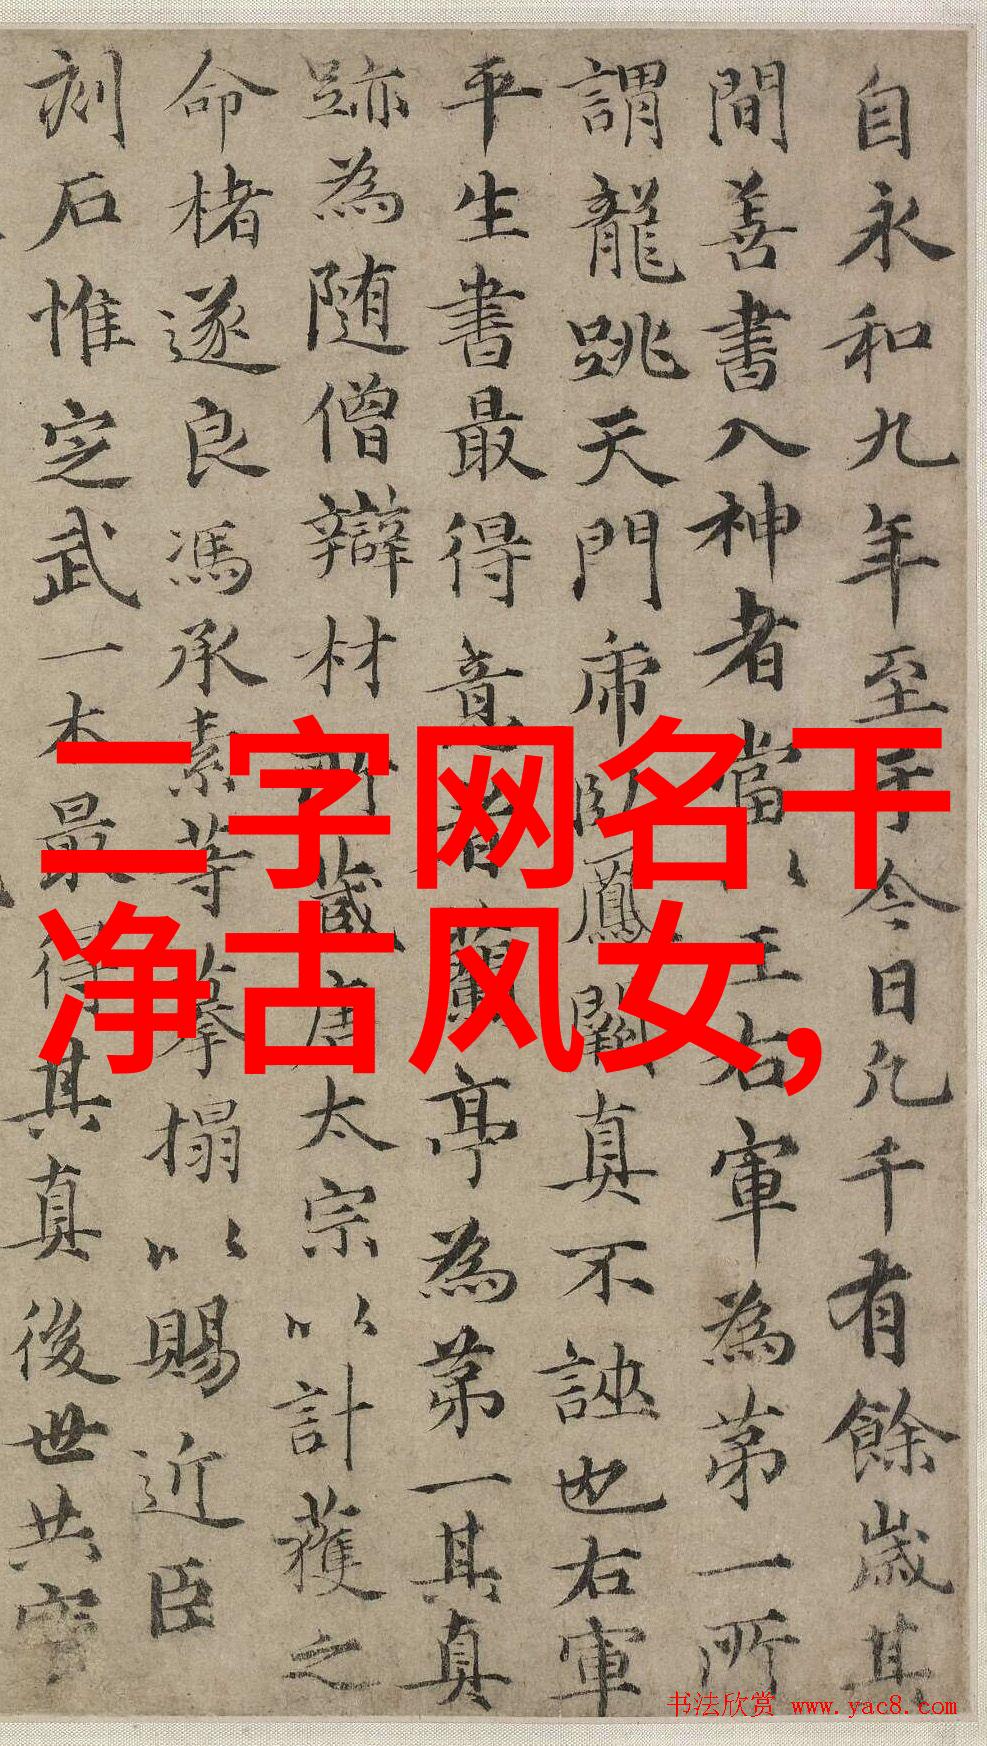 自永和九年至于今日凡千有餘歲其
間善書入神者當㇔王右軍為第一所
謂龍跳天門席臥鳳閣真不誣也右軍
平生書最得意者蘭亭為第一其真
跡為随僧辯材所藏唐太宗以計獲之
命楮遂良馮承素等摹搨以賜近臣
刻石惟定武一本最得其真後世共寶
二字网名干
净古风女,
书法欣赏 www.yac8.com